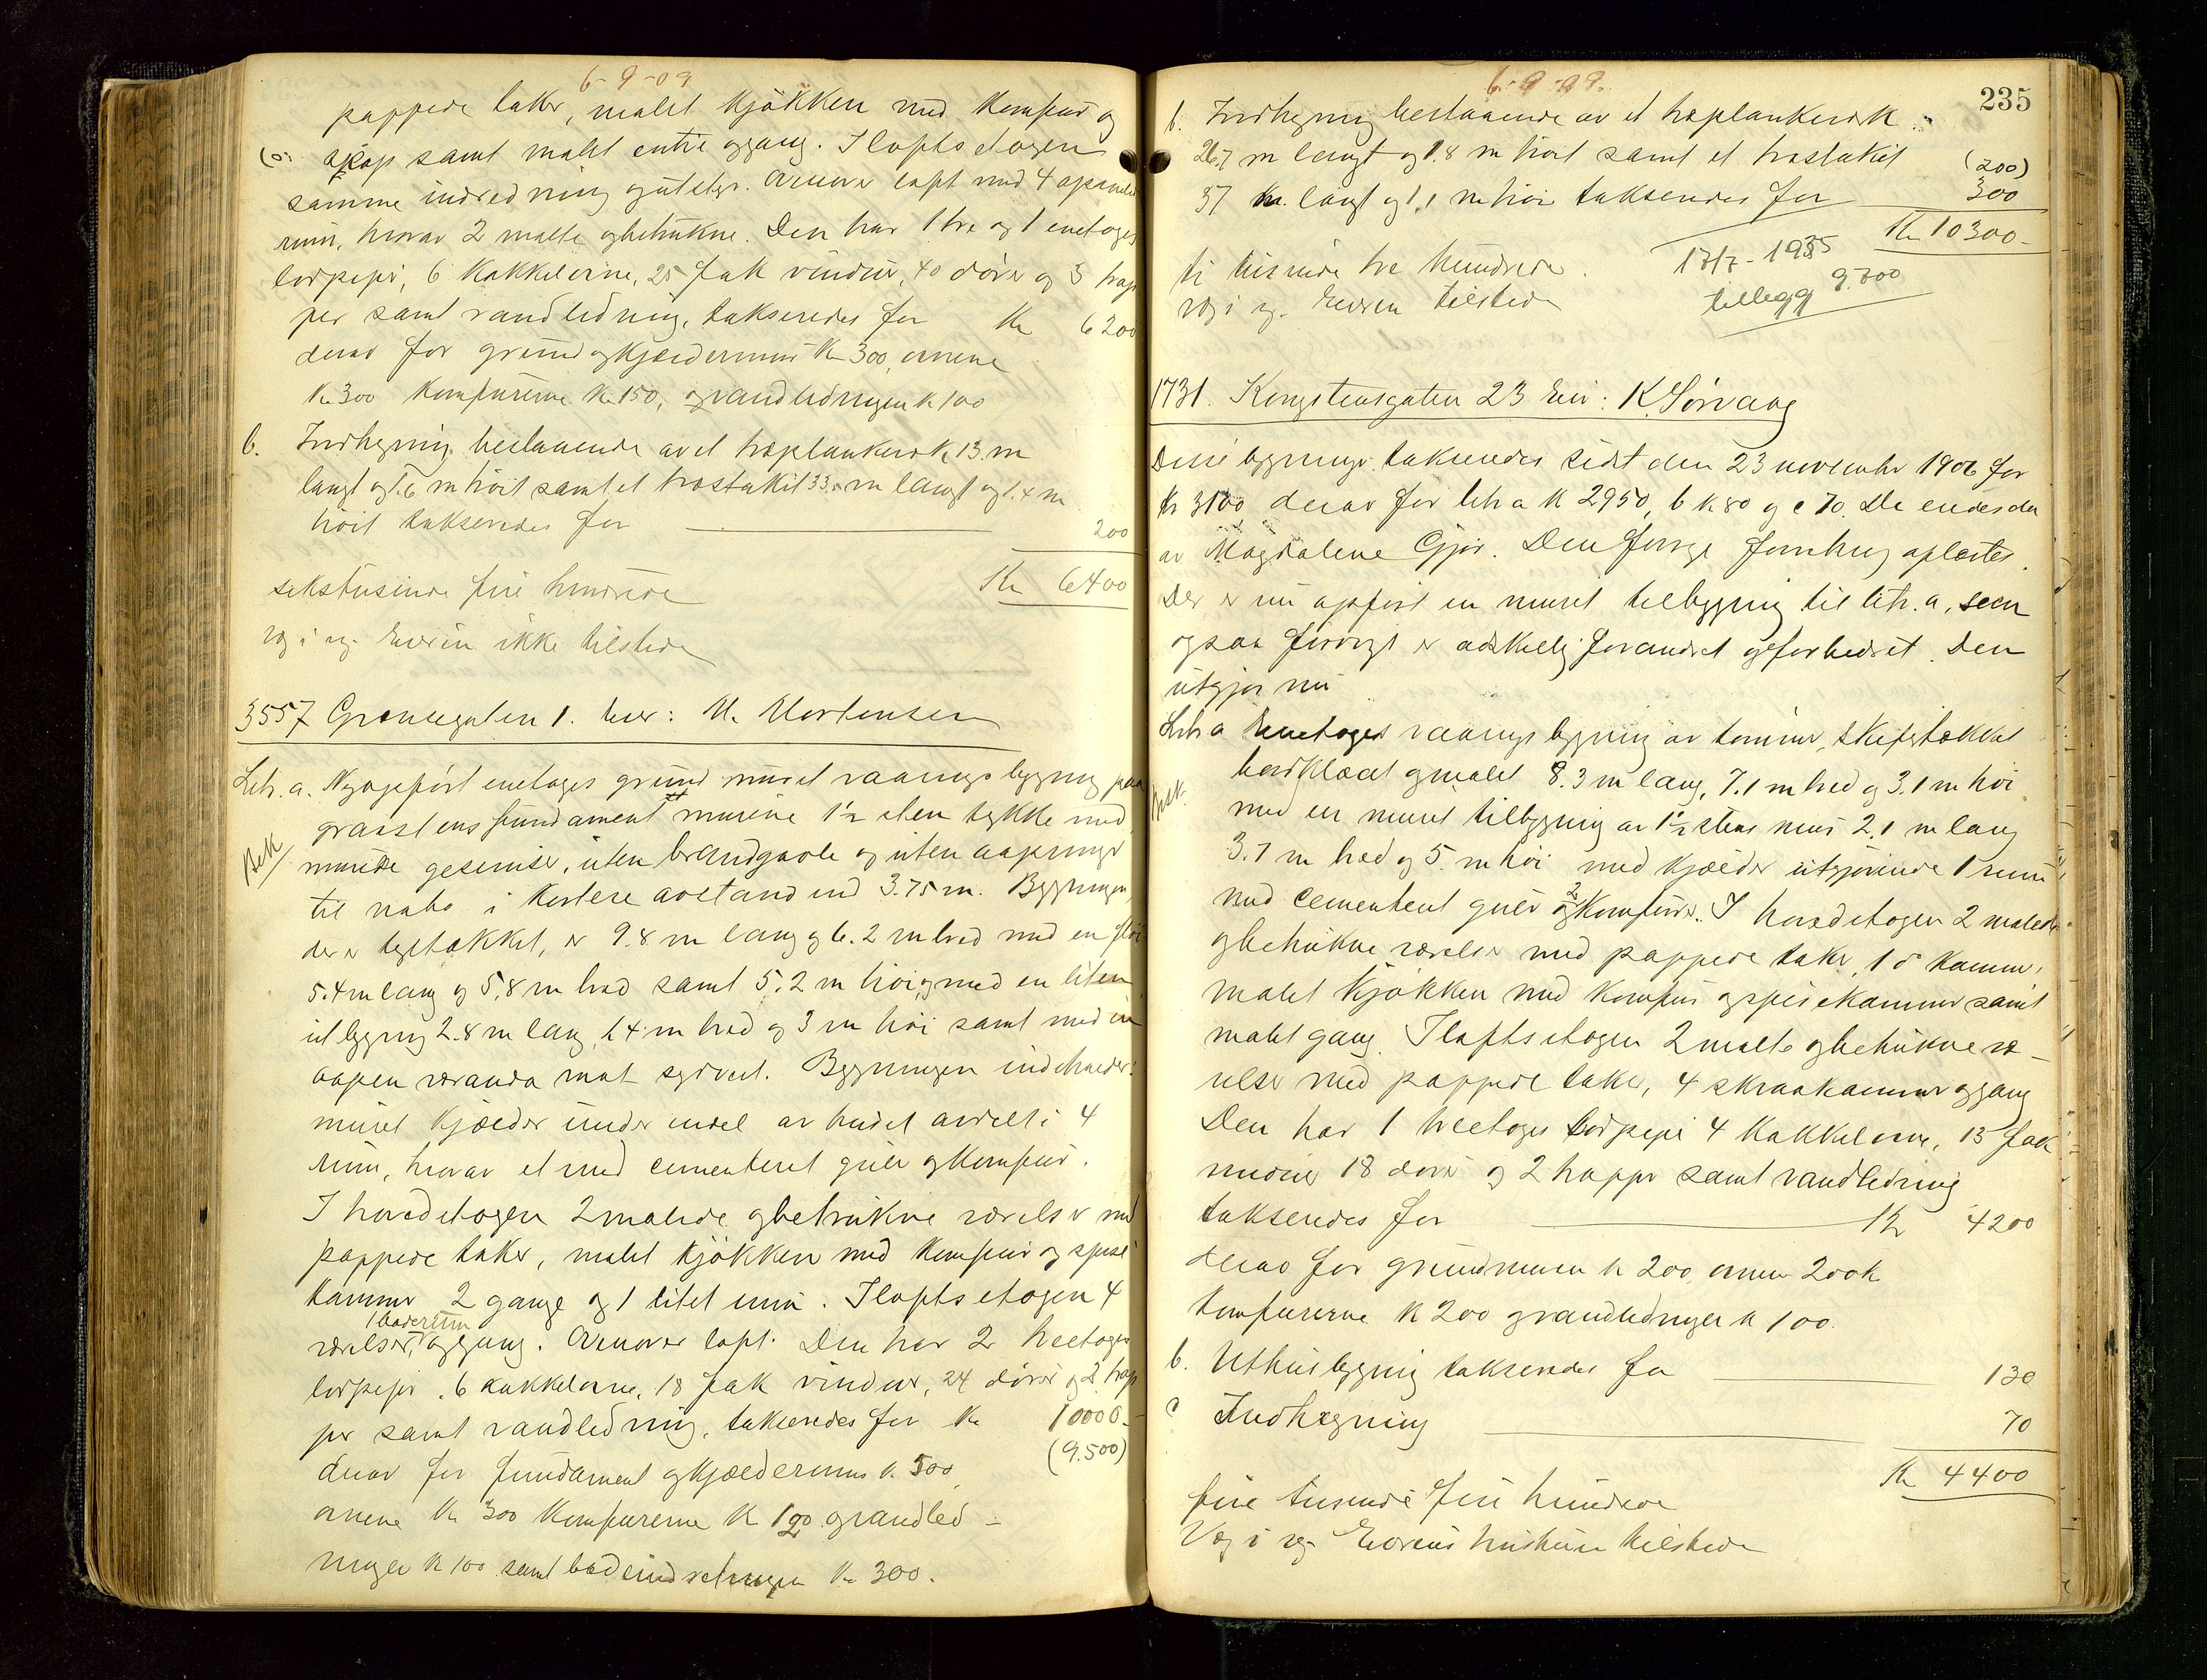 6-9-09
pappede taker, malet kjøkken med komfur og
skap samt malet entre og gang. I loftsetagen
samme indredning og utstyr. Ovenover loft med 4 opsamlede
rum, hvorav 2 malte og betrukne. Den har 1 tre og 1 enetages
lodpipe, 6 kakkelovne, 25 fak vinduer, 40 dører og 3 trap
per samt vandledning, takseredes for Kr 6200
derav for grund og kjældermur Kr 300, ovnene
Kr 300 komfurerne Kr 150, og vandledningen Kr 100
b. Indhegning bestaaende av et træplankeverk 13 m
langt og 1.6 m høit samt et træstakit 33 m langt og 1.4 m
høit takseredes for 200
Kr 6400
sekstusinde fire hundrede
Eieren ikke tilstede
3557 Grønsegaten 1. Eier: M. Mortensen
Litr. a. Nyopført enetages grund muret vaaningsbygning paa
graastens fundament murene 1½ sten tykke med
Besk
murede gesimser, uten brandgavle og uten aapninger
til nabo i kortere avstand end 3.75 m. Bygningen
der er teglstækket, er 9.8 m lang og 6.2 m bred med en fløi
5.4 m lang og 5.8 m bred samt 5.2 m høi og med en liten
utbygning 2.8 m lang, 1.4 m bred og 3 m høi samt med en
aapen veranda mot sydvest. Bygningen indeholder:
muret kjælder under endel av huset avdelt i 4
rum, hvorav et med cementeret gulv og komfur.
I hovedetagen 2 malede og betrukne værelser med
pappede taker, malet kjøkken med komfur og spise
kammer 2 gange og 1 litet rum. I loftsetagen 4
1 baderum
værelser, og gang. Ovenover loft. Den har 2 treetages
lodpiper, 6 kakkelovne, 18 fak vinduer, 24 dører og 2 trap
per samt vandledning, takseredes for Kr 10000.-
(9.500)
derav for fundament og kjældermur Kr 500,
ovnene Kr 300 komfurerne Kr 120 og vandled-
ningen Kr 100 samt badeindretningen Kr 300.
6-9-09.
235
b. Indhegning bestaaende av et træplankeverk
26.7 m langt og 1.8 m høit samt et træstakit
(200)
37 m. langt og 1.1 m høi takseredes for 300
Kr 10300-
ti tusinde tre hundrede.
17/7-1935
Eieren tilstede
tillegg 9.700
1731. Kongstensgaten 23 Eier: K. Sørvang
Disse bygninger takseredes sidst den 23 november 1906 for
kr 3100 derav for litr a K 2950, b k 80 og c 70. De eiedes da
av Magdalene Gjør. Den forrige forretning oplæstes.
Der er nu opført en muret tilbygning til litr. a, som
ogsaa forøvrigt er adskillig forandret og forbedret. Den
utgjør nu
Litr a Enetages vaaningsbygning av tømmer, skifertækket
bordklædt og malet 8.3 m lang, 7.1 m bred og 3.1 m høi
Besk.
med en muret tilbygning av 1½ stens mur 2.1 m lang
3.7 m bred og 5 m høi med kjælder utgjørende 1 rum
med cementeret gulv og 2 komfurer. I hovedetagen 2 malede
og betrukne værelser med pappede taker, 1 d° kammer,
malet kjøkken med komfur og spisekammer samt
malet gang. I loftsetagen 2 malte og betrukne væ-
relser med pappede taker, 4 skraakammer og gang
Den har 1 treetages lodpipe 4 kakkelovne, 15 fak
vinduer 18 dører og 2 trapper samt vandledning
takseredes for Kr 4200
derav for grundmuren k 200, ovnene 200 k
komfurerne K 200 og vandledningen k 100.
b. Uthusbygning takseredes for 130
c Indhegning 70
Kr 4400
fire tusinde fire hundrede
Eierens hustru tilstede